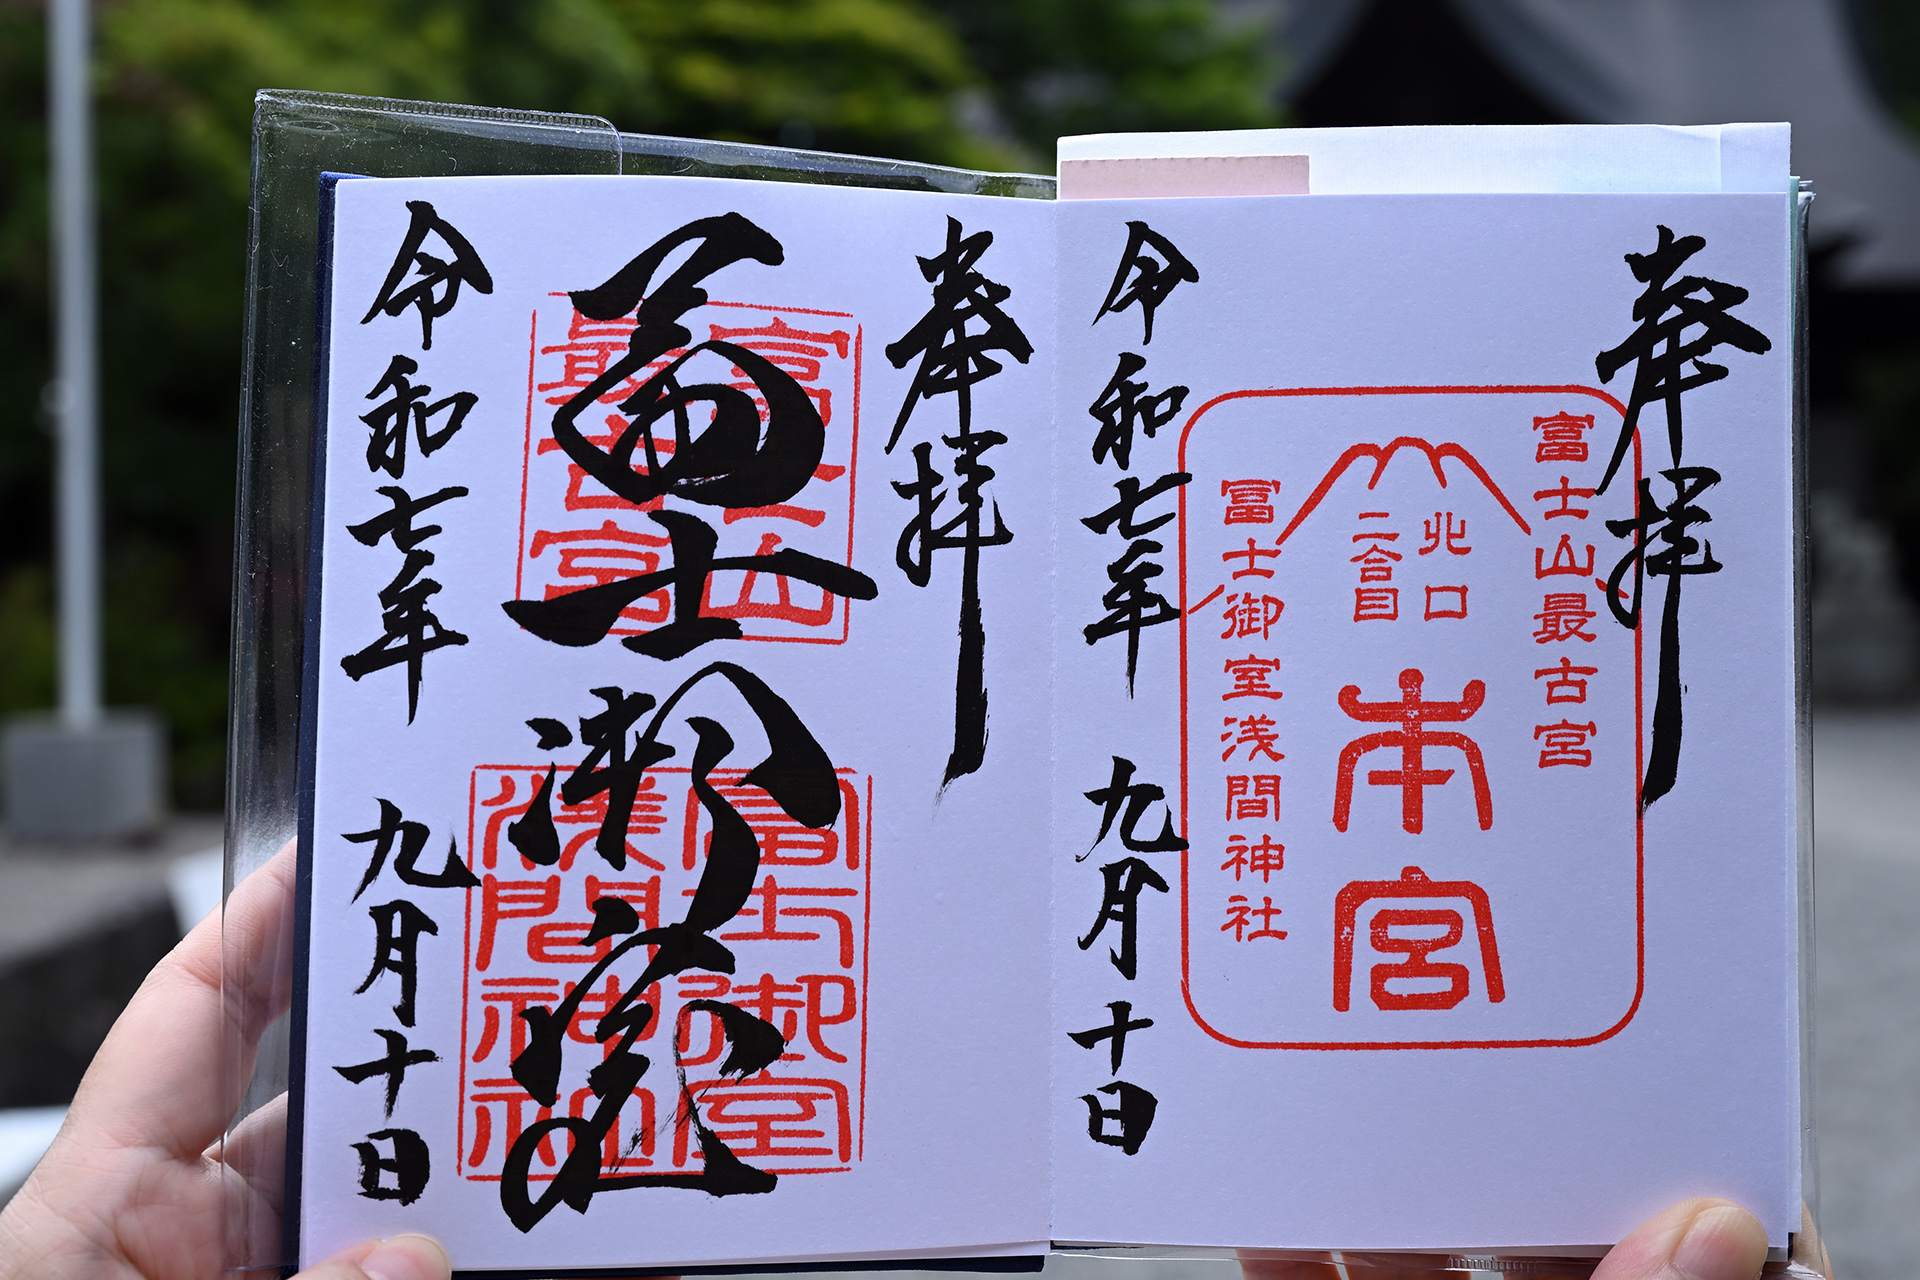 奉拝
富士山最古宮
北口
二合目
本宮
冨士御室浅間神社
令和七年 九月十日
奉拝
富士山
最古宮
冨士御室
冨士御室
淺間神社
令和七年 九月十日